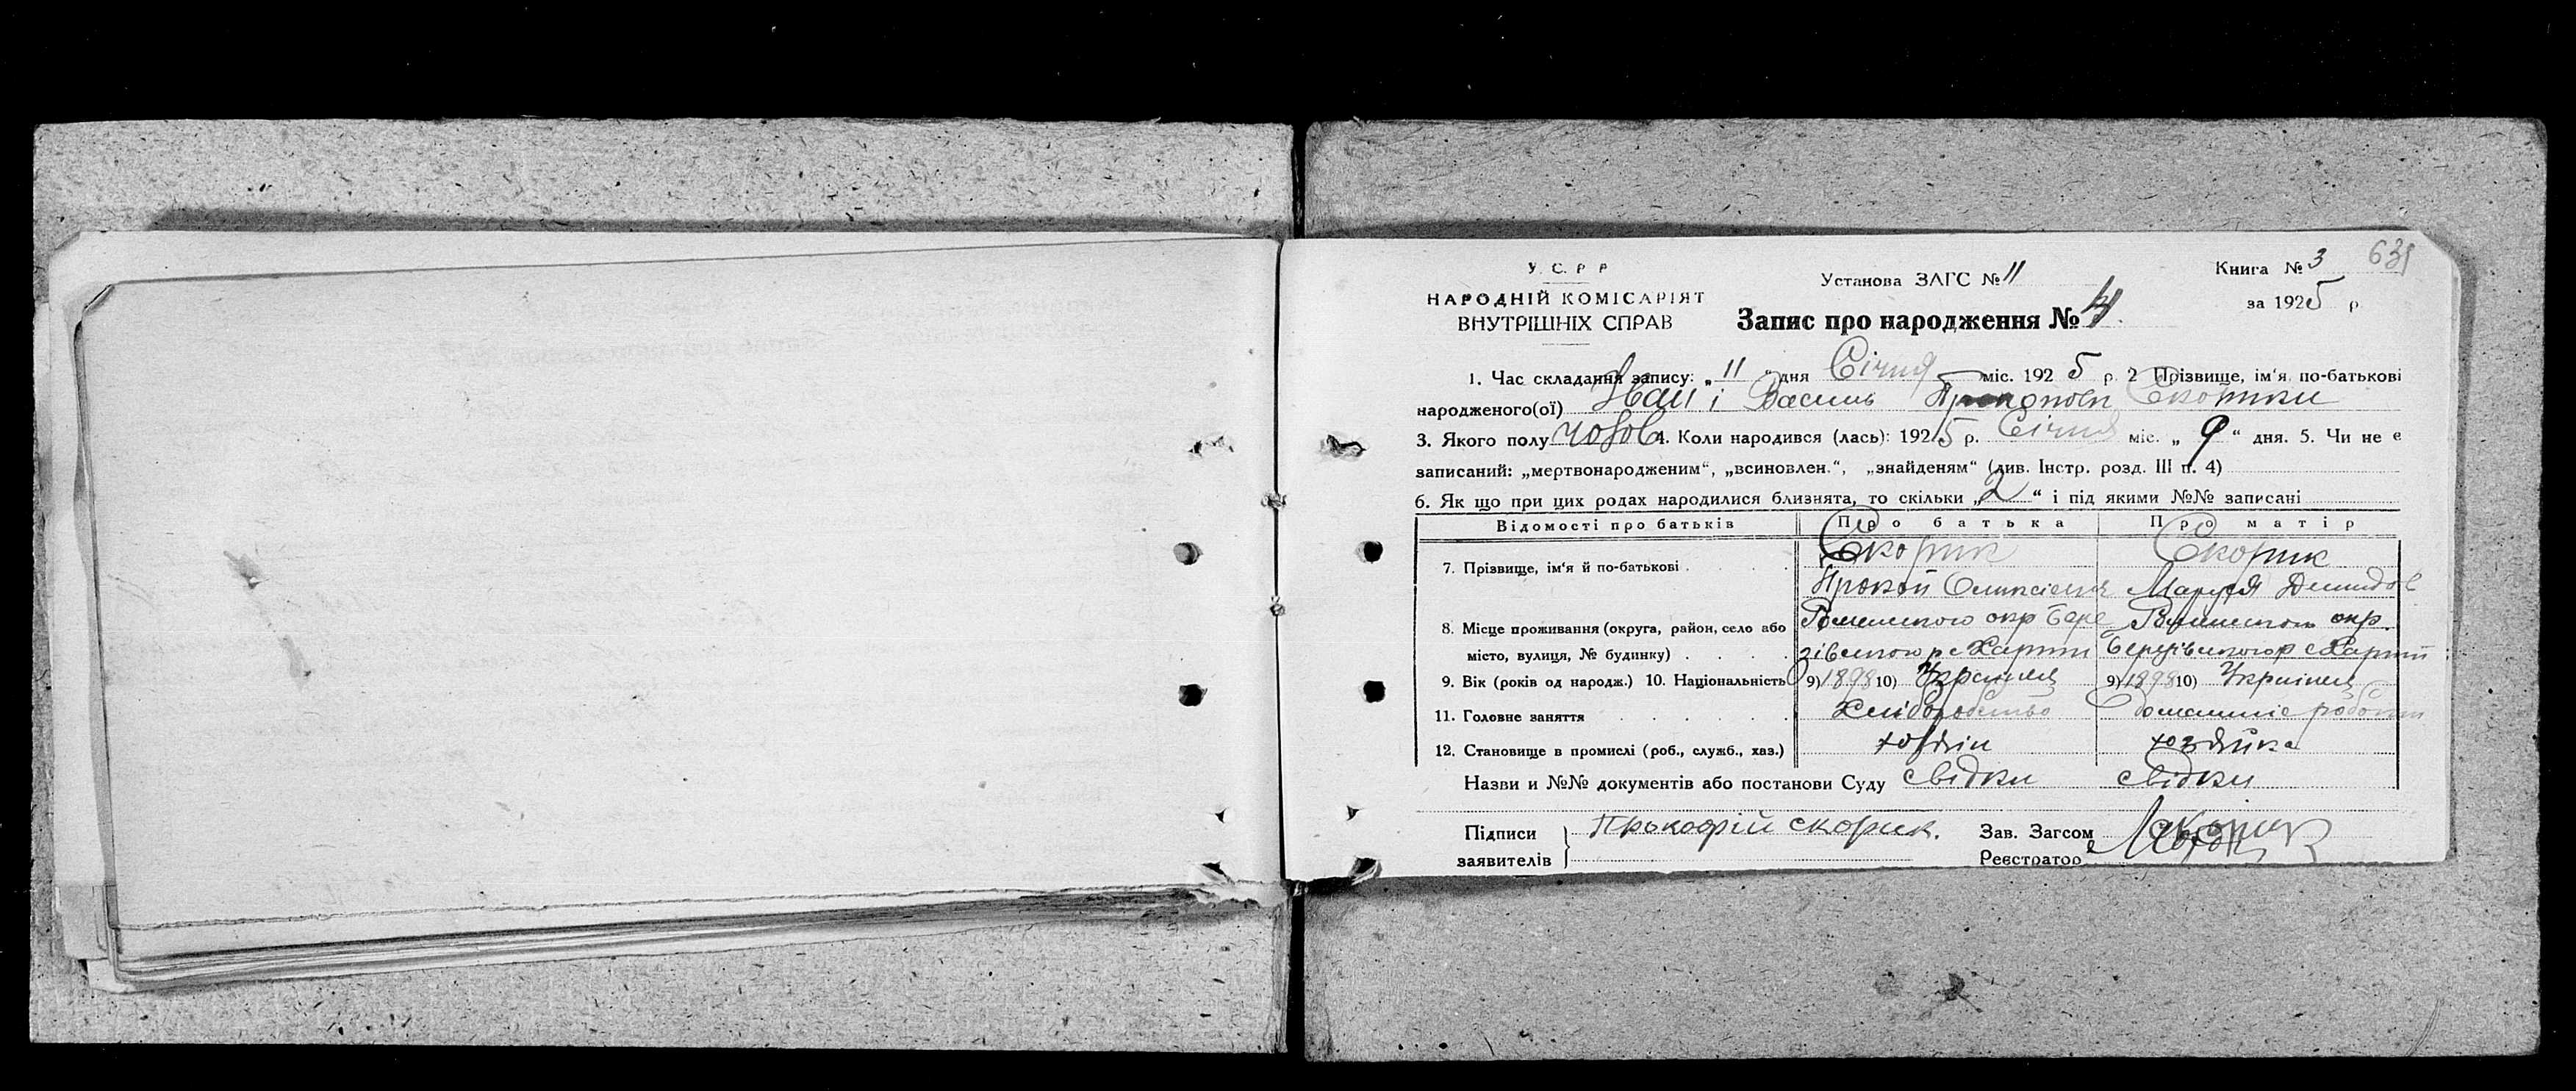 631
У. С. Р Р
НАРОДНІЙ КОМІСАРІЯТ
ВНУТРІШНІХ СПРАВ
Установа ЗАГС № 11
Книга № 3
за 1925 р
Запис про народження № 4
1. Час складання запису: „ 11 “ дня Січня міс. 1925 р. 2 Прізвище, ім‘я, по-батькові
народженого(ої) Іван і Василь Скорики
3. Якого полу чолов 4. Коли народився (лась): 1925 р. Січня міс. „ 9 “ дня. 5. Чи не є
записаний: „мертвонародженим“, „всиновлен.“, „знайденям“ (див. Інстр. розд. III п. 4)
6. Як що при цих родах народилися близнята, то скільки „ 2 “ і під якими №№ записані
Відомості про батьків Про батька Про матір
7. Прізвище, ім‘я й по-батькові Скорик Скорик
Прокоп Олексієвич Маруся Демидов
8. Місце проживання (округа, район, село або Роменського окр Бере Роменського окр.
місто, вулиця, № будинку) зівського р с Харитн Березівського р с Харитн
9. Вік (років од народж.) 10. Національність 9) 1898 10) Українец 9) 1898 10) Українец
11. Головне заняття Хліборобство домашніе роботи
12. Становище в промислі (роб., служб., хаз.) хозяін хозяйка
Назви и №№ документів або постанови Суду свідки свідки
Підписи Прокофій скорик. Зав. Загсом
заявителів Реєстратор